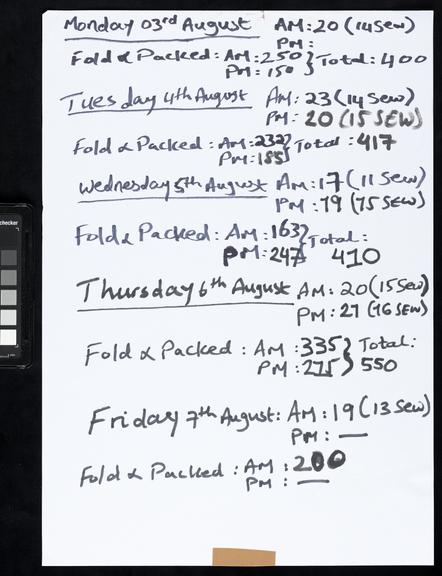 Monday 03rd August AM:20 (14 Sew)
PM:
Fold & Packed: AM:250 } Total: 400
PM: 150
Tuesday 4th August AM: 23 (14 Sew)
PM: 20 (15 SEW)
Fold & Packed: AM:232 } Total: 417
PM:185
Wednesday 5th August AM:17 (11 Sew)
PM: 19 (15 SEW)
Fold & Packed: AM:163 } Total:
PM:247 410
Thursday 6th August AM: 20 (15 Sew)
PM: 21 (16 SEW)
Fold & Packed: AM:335 } Total:
PM:275 550
Friday 7th August: AM:19 (13 Sew)
PM: —
Fold & Packed: AM:200
PM: —
checker